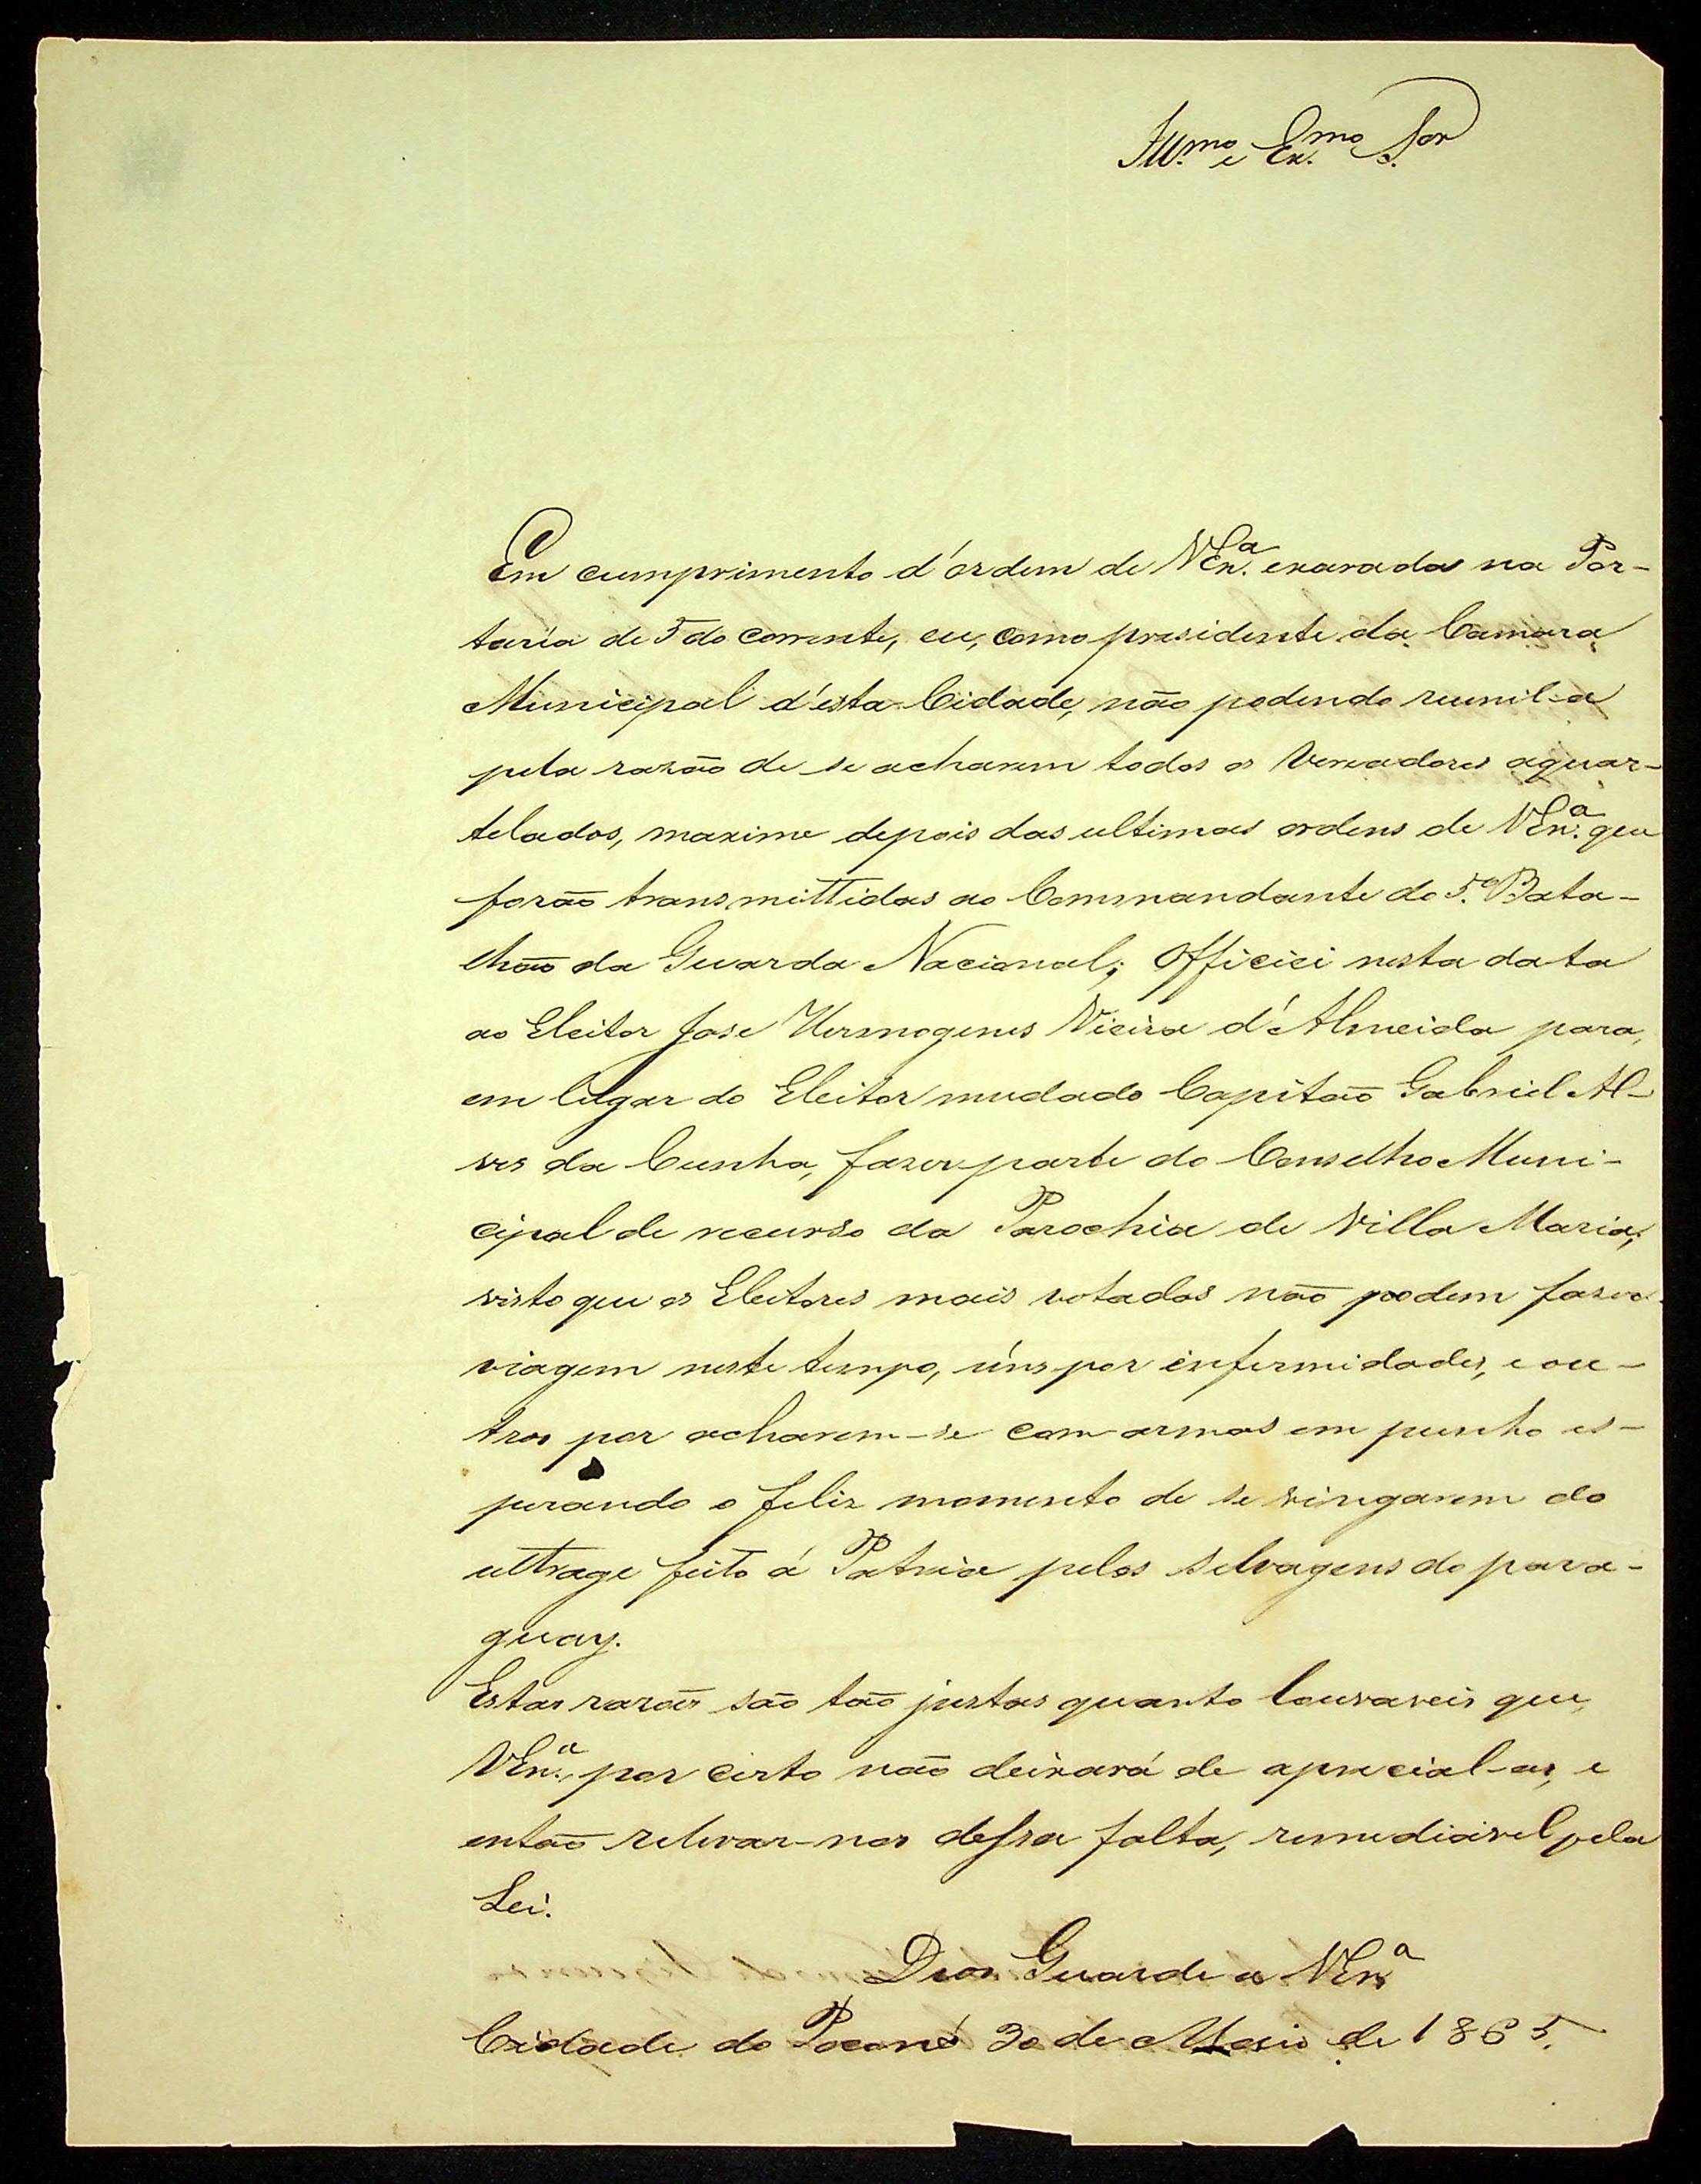 Illmo. e Exmo. Sor
Em cumprimento d'ordem de VExa. exarada na Por-
taria de 5 do corrente, eu, como presidente da Camara
Municipal d'esta Cidade, não podendo reunil-a
pela razão de se acharem todos os Vereadores aquar-
telados, maxime depois das ultimas ordens de VExa. que
forão transmittidas ao Commandante do 5.º Bata-
lhão da Guarda Nacional; Officiei nesta data
ao Eleitor Jose Hermogenes Vieira d'Almeida para,
em lugar do Eleitor mudado Capitão Gabriel Al-
ves da Cunha, fazer parte do Conselho Muni-
cipal de recurso da Parochia de Villa Maria,
visto que os Eleitores mais votados não podem fazer
viagem neste tempo, úns por infermidades, e ou-
tros por acharem-se com armas em punho es-
perando o feliz momento de se vingarem do
ultrage feito á Patria pelos selvagens do para-
guay.
Estas razões são tão justas quanto louvaveis que,
VExa., por certo não deixará de aprecial-as, e
então relevar-nos dessa falta, remediavel pela
Lei.
Deos Guarde a VExa
Cidade do Poconé 30 de Maio de 1865.